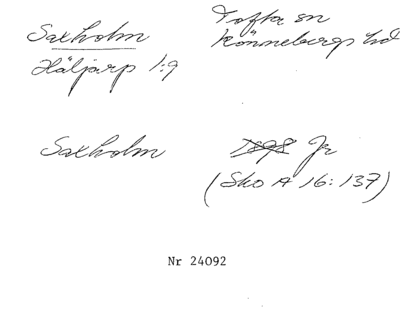 Saxholm
Tofta sn
Häljarp 1:9
Rönnebergs hd
Saxholm
1898 Jr
(Sko A 16:137)
Nr 24092